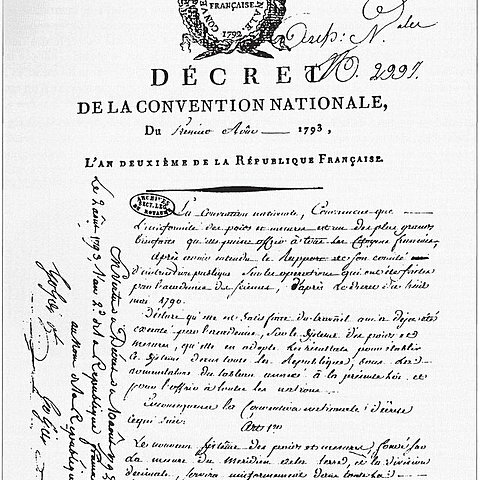 CONVENTION NATIONALE.
FRANÇAISE.
1792
N. 2991.
DÉCRET
DE LA CONVENTION NATIONALE,
Du premier Août 1793,
L'AN DEUXIÈME DE LA RÉPUBLIQUE FRANÇAISE.
ARCHIVES
SECT. LEG.
DU ROYAUME
La Convention nationale, Convaincue que
L'uniformité des poids et mesures est un des plus grands
bienfaits qu'elle puisse offrir à tous les Citoyens français,
après avoir entendu le Rapport de son comité
d'instruction publique Sur les opérations qui ont été faites
par l'académie des Sciences, d'après Le Décret du huit
mai 1790.
Déclare qu'elle est Satisfaite du travail qui a déjà été
par l'académie, Sur le Système des poids et
mesures, qu'elle en adopte Les résultats pour établir
Le Système dans toute la République, sous La
nomenclature du tableau annexé à la présente loi, et
pour l'offrir à toutes les nations.
En conséquence la Convention nationale décrète
ce qui Suit:
Art 1er
Le nouveau Système des poids et mesures, fondé Sur
La mesure du Méridien de la terre, et la division
décimale, Servira uniformément dans toute la
Le 2 août 1793 L'an 2d de la République
au nom de la République